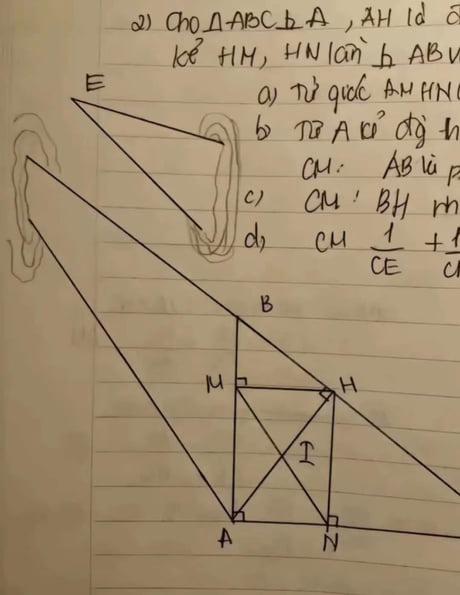 2) Cho △ABC ⊥ A, AH là
kẻ HM, HN lần ⊥ AB
a) Tứ giác AMHN
b) Từ A kẻ
CM: AB là
c) CM: BH
d) CM 1/CE + 1/
E
B
M
H
I
A
N